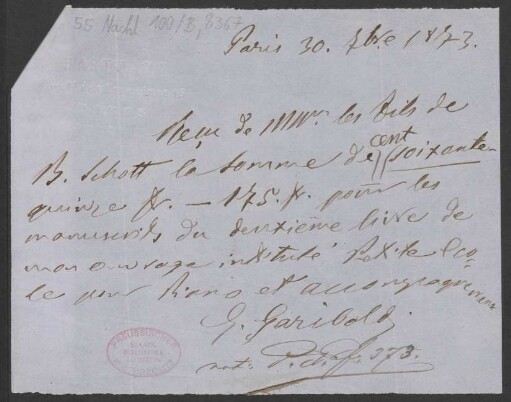 55 Nachl 100/B, 8367
Paris 30. 7bre 1873.
Reçu de MMrs. les fils de
cent
B. Schott la somme de soixante-
quinze fr. — 175. fr. pour les
manuscrits du deuxième livre de
mon ouvrage intitulé Petite Eco-
le pour Piano et accompagnement
G. Gariboldi
not: